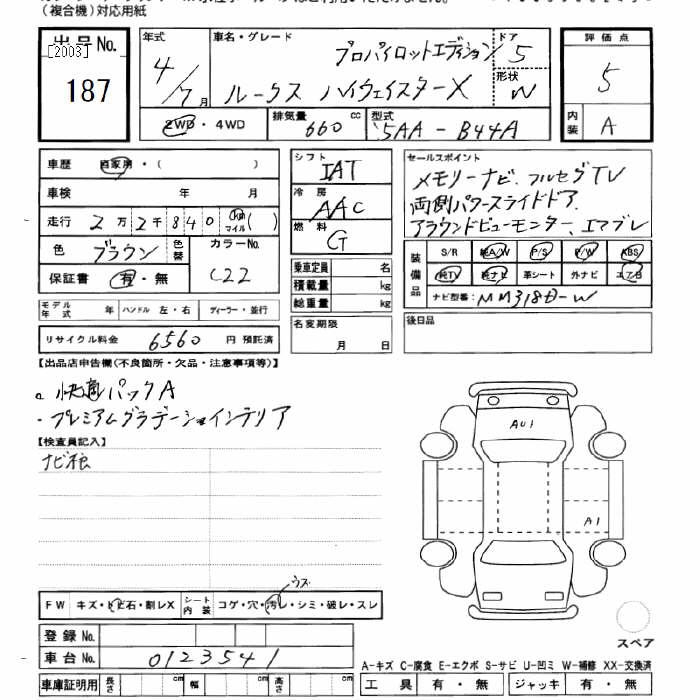 （複合機）対応用紙
出品No.
［2003］
187
年式
4／7月
車名・グレード
プロパイロットエディション
ルークス ハイウェイスターX
ドア
5
形状
W
評価点
5
内装
A
2WD・4WD
排気量
660 cc
型式
5AA－B44A
車歴 自家用・（ ）
車検 年 月
走行 2万2千840 km マイル（ ）
色 ブラウン
色替
カラーNo.
C22
保証書 有・無
モデル年式 年 ハンドル 左・右 ディーラー・並行
リサイクル料金 6560 円 預託済
シフト
IAT
冷房
AAC
燃料
G
乗車定員 名
積載量 kg
総重量 kg
名変期限
月 日
セールスポイント
メモリーナビ、フルセグTV
両側パワースライドドア、
アラウンドビューモニター、エマブレ
装備品
S/R 純A/W P/S P/W ABS
純TV 純ナビ 革シート 外ナビ エアB
ナビ型番： MM318D-W
後日品
【出品店申告欄（不良箇所・欠品・注意事項等）】
快適パックA
・プレミアムグラデーションインテリア
【検査員記入】
ナビ
AU1
A1
スペア
ウス
FW キズ・トビ石・割レX
シート内装 コゲ・穴・汚レ・シミ・破レ・スレ
登録No.
車台No. 0123541
車庫証明用 長さ cm 幅 cm 高さ cm
A－キズ C－腐食 E－エクボ S－サビ U－凹ミ W－補修 XX－交換済
工具 有・無 ジャッキ 有・無